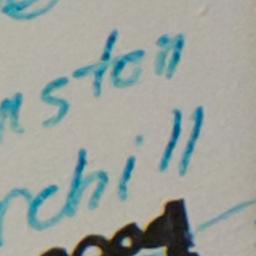 nston
rchill